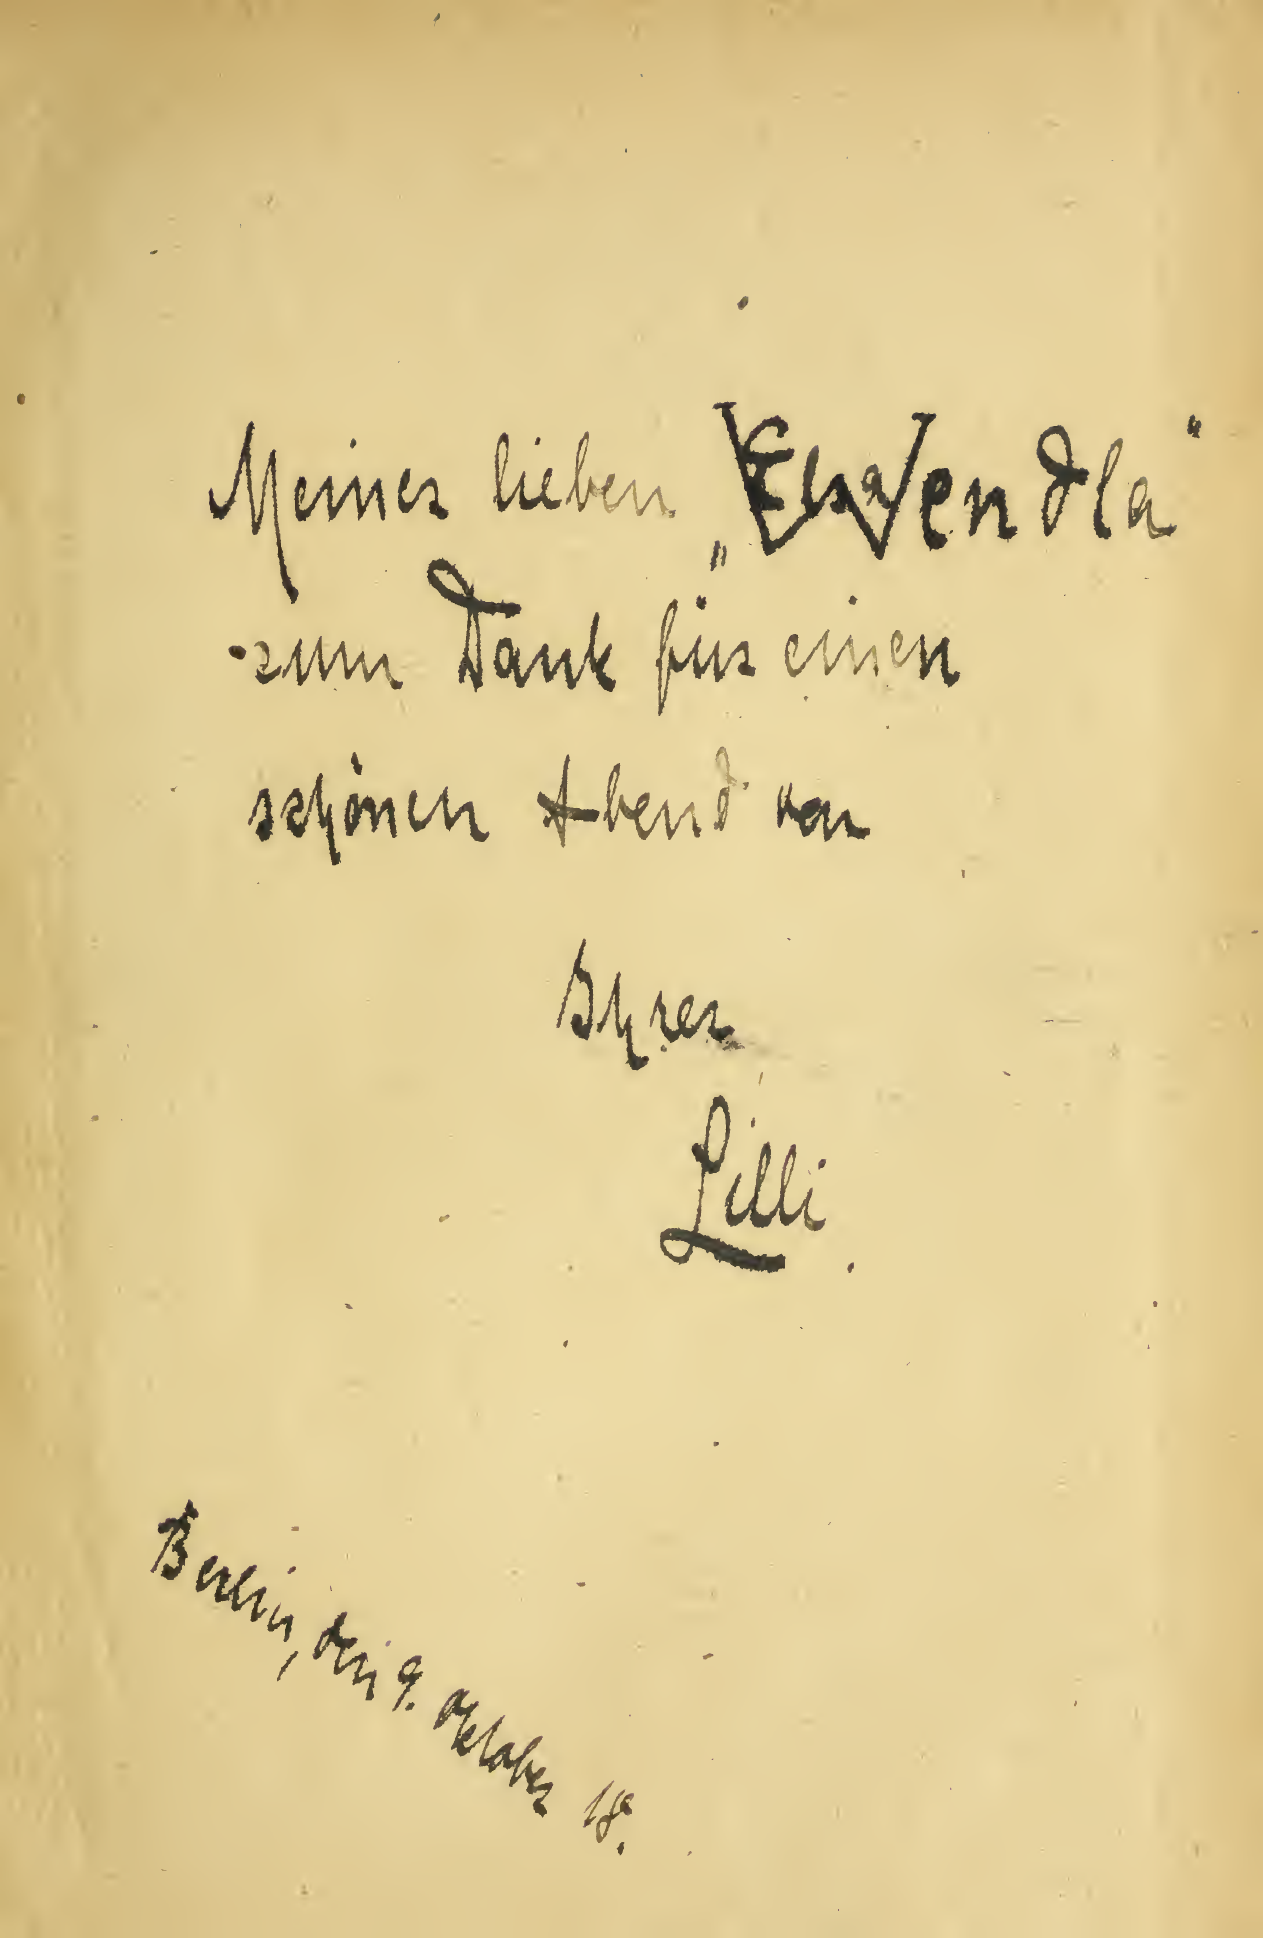 Meiner lieben „Wendla“
zum Dank für einen
schönen Abend von
Ihrer
Lilli.
Berlin, den 9. Oktober 18.